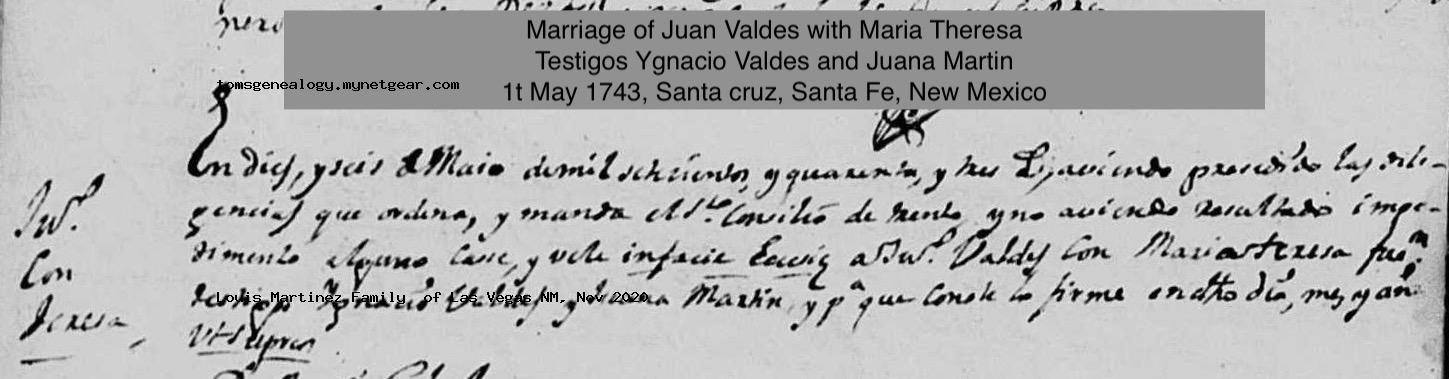 pero
Marriage of Juan Valdes with Maria Theresa
Testigos Ygnacio Valdes and Juana Martin
1t May 1743, Santa cruz, Santa Fe, New Mexico
tomsgenealogy.mynetgear.com
En dies, y seis de Maio de mil setecientos, y quarenta, y tres aviendo presedido las dili-
gencias que ordena, y manda el Sto. Consilio de trento y no aviendo resultado impe-
dimento alguno case, y vele in facie Eccsiæ a Jun. Valdes Con Maria teresa fuen.
testigos Ygnacio Valdes y Juana Martin, y pa. que Conste lo firme en dho dia, mes, y año
Ut Supra
Jun.
Con
Teresa,
Louis Martinez Family, of Las Vegas NM, Nov 2020